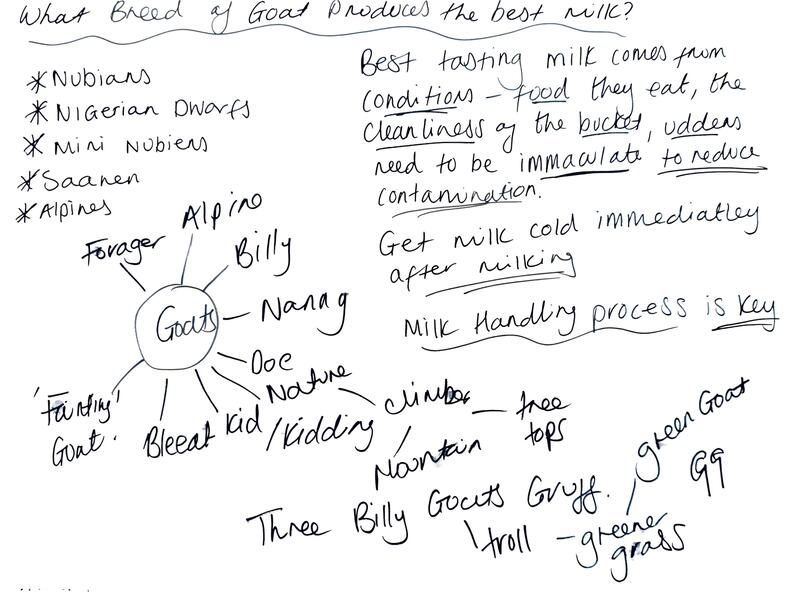 What Breed of Goat Produces the best milk?
* Nubians
* Nigerian Dwarfs
* Mini Nubiens
* Saanen
* Alpines
Best tasting milk comes from
conditions – food they eat, the
cleanliness of the bucket, udders
need to be immaculate to reduce
contamination.
Get milk cold immediatley
after milking
Milk Handling process is key
Forager
Alpine
Billy
Goats
Nanny
Doe
Nature
climber
tree
tops
Mountain
'Fainting'
Goat.
Bleeat
Kid
/Kidding
Three Billy Goats Gruff.
troll
– greener
grass
green Goat
GG